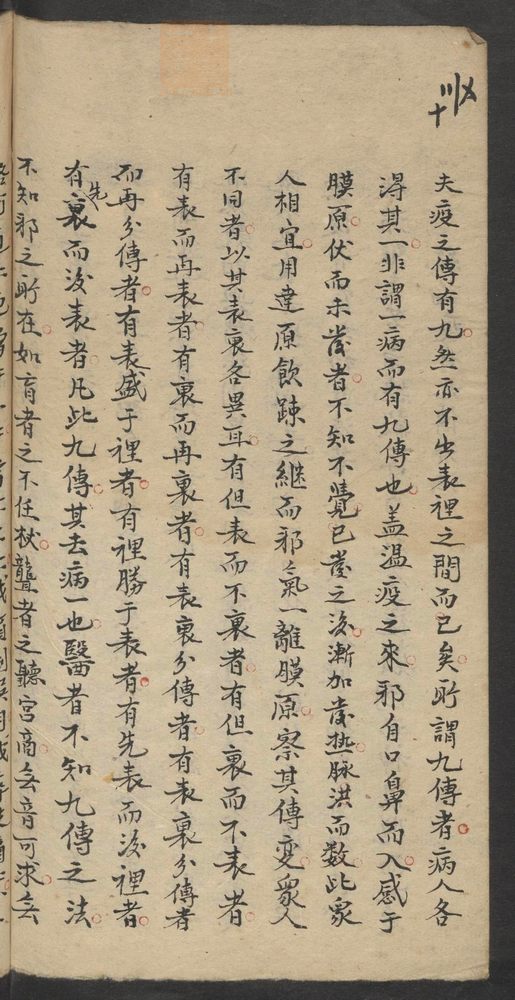 夫疫之傳有九然亦不出表裡之間而已矣所謂九傳者病人各
得其一非謂一病而有九傳也盖温疫之來邪自口鼻而入感于
膜原伏而未發者不知不覺已發之後漸加發热脉洪而数此衆
人相宜用達原飲踈之継而邪氣一離膜原察其傳変衆人
不同者以其表裏各異耳有但表而不裏者有但裏而不表者
有表而再表者有裏而再裏者有表裏分傳者有表裏分傳者
而再分傳者有表盛于裡者有裡勝于表者有先表而後裡者
有先裏而後表者凡此九傳其去病一也醫者不知九傳之法
不知邪之所在如盲者之不任杖聾者之聽宮商無音可求無